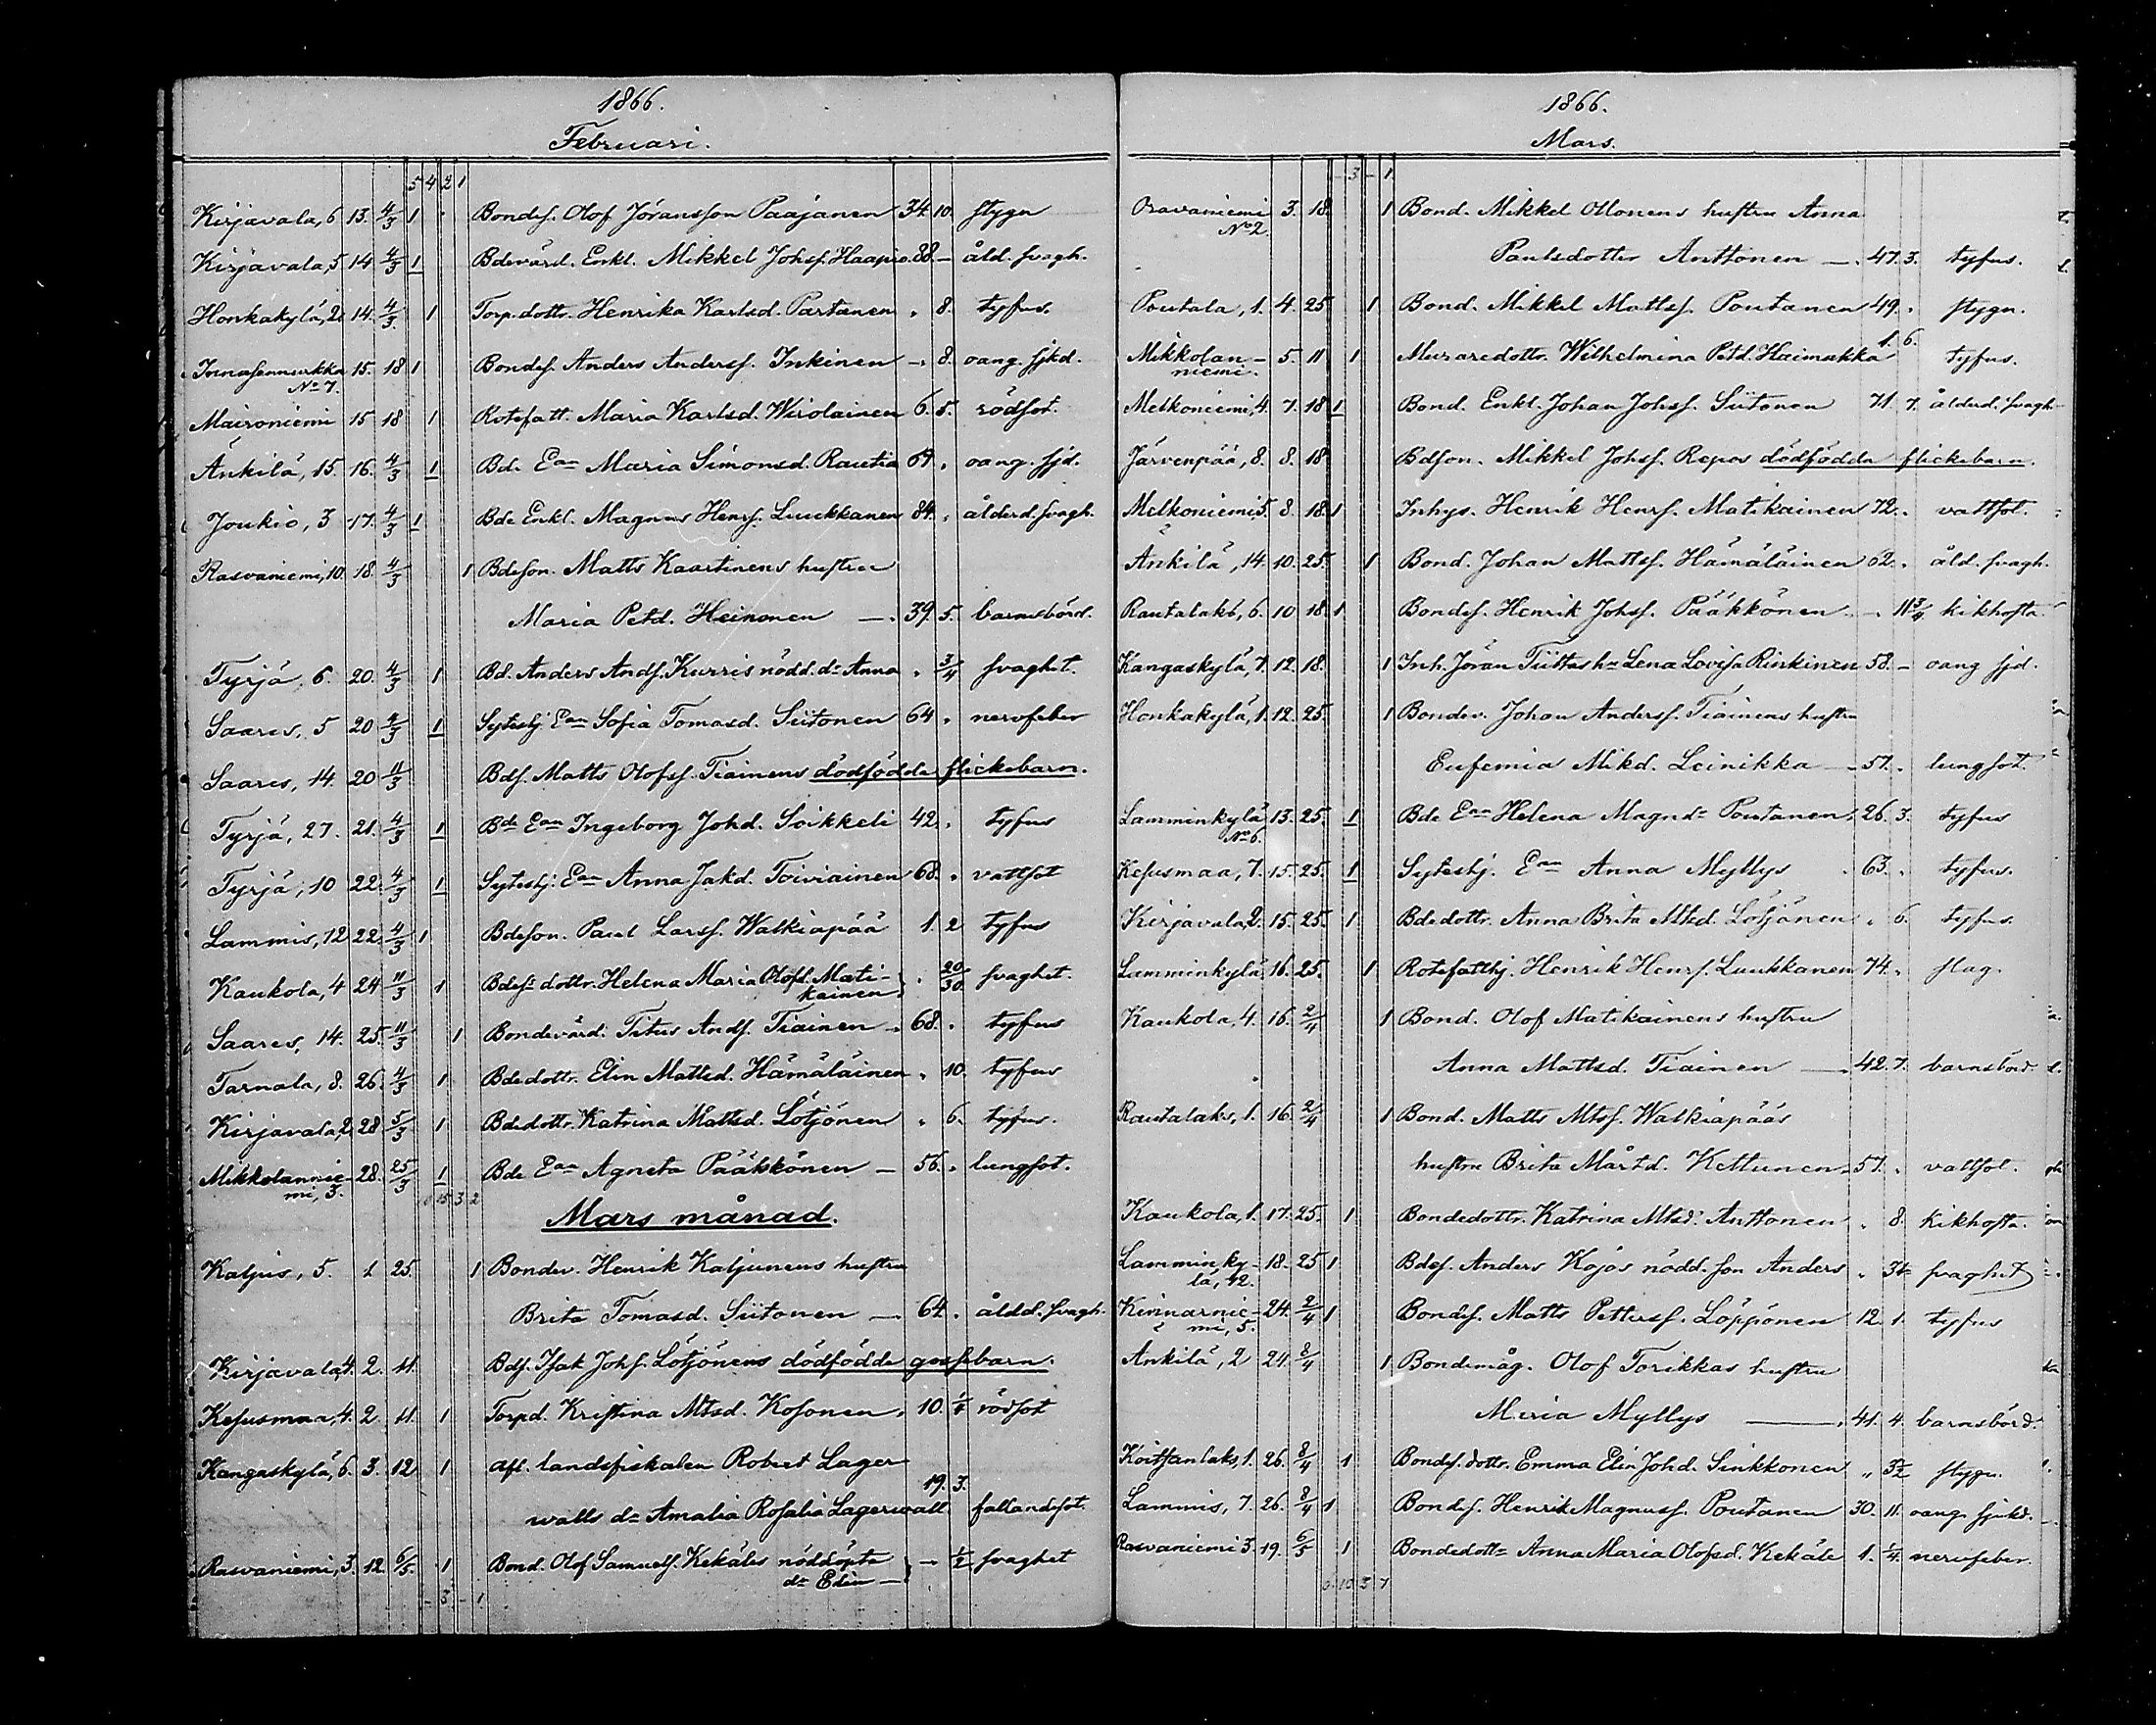 1866.
Februari.
5 4 2 1
Kirjavala, 6 13. 4/3 1 Bondes. Olof Jöransson Paajanen 34. 10. stygn
Kirjavala, 5 14 4/3 1 Bdevärd. Enkl. Mikkel Johss. Haapio. 88. - åld. svagh.
Honkakylä, 2 14. 4/3 1 Torp. dottr. Henrika Karlsd. Partanen „ 8. tyfus.
No 7. 15. 18 1 Bondes. Anders Anderss. Inkinen - 8. oang. sjkd.
Maironiemi 15 18 1 Rotefatt. Maria Karlsd. Wirolainen 6. 5. rödsot.
Änkilä, 15. 16. 4/3 1 Bde Ean Maria Simonsd. Rautia 64 „ oang. sjd.
Joukio, 3 17. 4/3 1 Bde Enkl. Magnus Henrs. Luukkanen 84. „ ålderd. svagh.
Rasvaniemi, 10. 18. 4/3 1 Bdeson. Matts Kaartinens hustru
Maria Petd. Heinonen - 39. 5. barnsbörd.
Tyrjä, 6. 20. 4/3 1 Bd. Anders Ands. Kurris nödd. dr Anna „ 3/4 svaghet.
Saares, 5 20 4/3 1 Sytestj. Ean Sofia Tomasd. Siitonen 64 „ nervfeber
Saares, 14. 20 11/3 Bds. Matts Olofss. Tiainens dödfödda flickebarn.
Tyrjä, 27. 21. 4/3 1 Bde Ean Ingeborg Johd. Soikkeli 42. „ tyfus
Tyrjä, 10 22. 4/3 1 Sytestj. Ean Anna Jakd. Toiviainen 68. „ vattsot
Lammis, 12 22. 4/3 1 Bdeson. Paul Larss. Walkiapää 1. 2 tyfus
Kaukola, 4 24 11/3 1 Bdess dottr. Helena Maria Olofd. Mati-
kainen „ 20/30 svaghet.
Saares, 14. 25. 11/3 1 Bondevärd. Titus Ands. Tiainen - 68. „ tyfus
Tarnala, 8. 26. 4/3 1 Bdedottr. Elin Mattsd. Hämäläinen „ 10. tyfus
Kirjavala, 2 28 5/3 1 Bdedottr. Katrina Mattsd. Lötjönen „ 6. tyfus.
Mikkolannie-
mi, 3. 28. 25/3 1 Bde Ean Agneta Pääkkönen - 56. „ lungsot.
15 3 2
Mars månad.
Kaljus, 5. 1 25. 1 Bondev. Henrik Kaljunens hustru
Brita Tomasd. Siitonen - 64. „ åldd. svagh.
Kirjavala, 4. 2. 11. Bds. Isak Johs. Lötjönens dödfödda gossbarn.
Kesusmaa, 4. 2. 11. 1 Torpd. Kristina Mtsd. Kosonen. 10. rödsot
Kangaskylä, 6. 3. 12 1 afl. landsfiskalen Robert Lager
walls dr Amalia Rosalia Lagerwall 19. 3. fallandesot.
Rasvaniemi, 3. 12. 6/5. 1 Bond. Olof Samuels. Kekäles nöddöpta
dr Edin - - 1/2 svaghet
- 3 - 1.
1866.
Mars.
- 3 - 1
No 2. 3. 18. 1 Bond. Mikkel Ollonens hustru Anna
Paulsdotter Anttonen -. 47. 3. tyfus.
Poutala, 1. 4. 25 1 Bond. Mikkel Mattss. Poutanen 49. „ stygn.
Mikkolan-
niemi. 5. 11 1 Muraredottr. Wilhelmina Petd. Haimakka 1. 6. tyfus.
Melkoniemi, 4. 7. 18 1 Bond. Enkl. Johan Johss. Siitonen 71. 7. ålderd. svagh-
Järvenpää, 8. 8. 18 Bdson. Mikkel Johss. Repos dödfödda flickebarn.
Melkoniemi, 5. 8. 18. 1 Inhys. Henrik Henrs. Matikainen 72. „ vattsot.
Änkilä, 14. 10. 25. 1 Bond. Johan Mattss. Hämäläinen 62. „ åld. svagh.
Rautalaks, 6. 10 18. 1 Bondes. Henrik Johss. Pääkkönen. - 11 3/4 kikhosta
Kangaskylä, 7. 12. 18. 1 Inh. Jöran Tiittas hu Lena Lovisa Rinkinen 58. - oang sjd.
Honkakylä, 1. 12. 25. 1 Bondev. Johan Anderss. Tiainens hustru
Eufemia Mikd. Leinikka - 57. „ lungsot.
Lamminkylä
No 6. 13. 25. 1 Bde Ean Helena Magnd. Poutanen. 26. 3. tyfus
Kesusmaa, 7. 15. 25. 1 Sytestj. Ean Anna Myllys 63. „ tyfus.
Kirjavala, 2. 15. 25. 1 Bdedottr. Anna Brita Mtsd. Lötjönen „ 6. tyfus.
Lamminkylä 16. 25. 1 Rotefatthj. Henrik Henrs. Luukkanen 74. „ slag.
Kaukola, 4. 16. 2/4 1 Bond. Olof Matikainens hustru
Anna Mattsd. Tiainen - 42. 7. barnsbörd
Rautalaks, 1. 16. 2/4 1 Bond. Matts Mtss. Walkiapääs
hustru Brita Mårtd. Kettunen. 57. „ vattsot.
Kaukola, 1. 17. 25. 1 Bondedottr. Katrina Mtsd. Anttonen „ 8. kikhosta.
Lamminky-
lä, 12. 18. 25 1 Bdes. Anders Kojos nödd. son Anders „ svaghet
Kinnarnie-
mi, 5. 24. 2/4 1 Bondes. Matts Petters. Löppönen 12. 1. tyfus
Änkilä, 2 24. 8/4 1 Bondemåg. Olof Torikkas hustru
Maria Myllys -. 41. 4. barnsbörd.
Koitsanlaks, 1. 26. 8/4 1 Bondes. dottr. Emma Elin Johd. Sinkkonen „ stygn.
Lammis, 7. 26. 8/4 1 Bondes. Henrik Magnuss. Poutanen 30. 11. oang. sjukd.
Rasvaniemi 3. 19. 6/5 1 Bondedottr Anna Maria Olofsd. Kekäle 1. 1/4. nervfeber.
6. 10 3 7